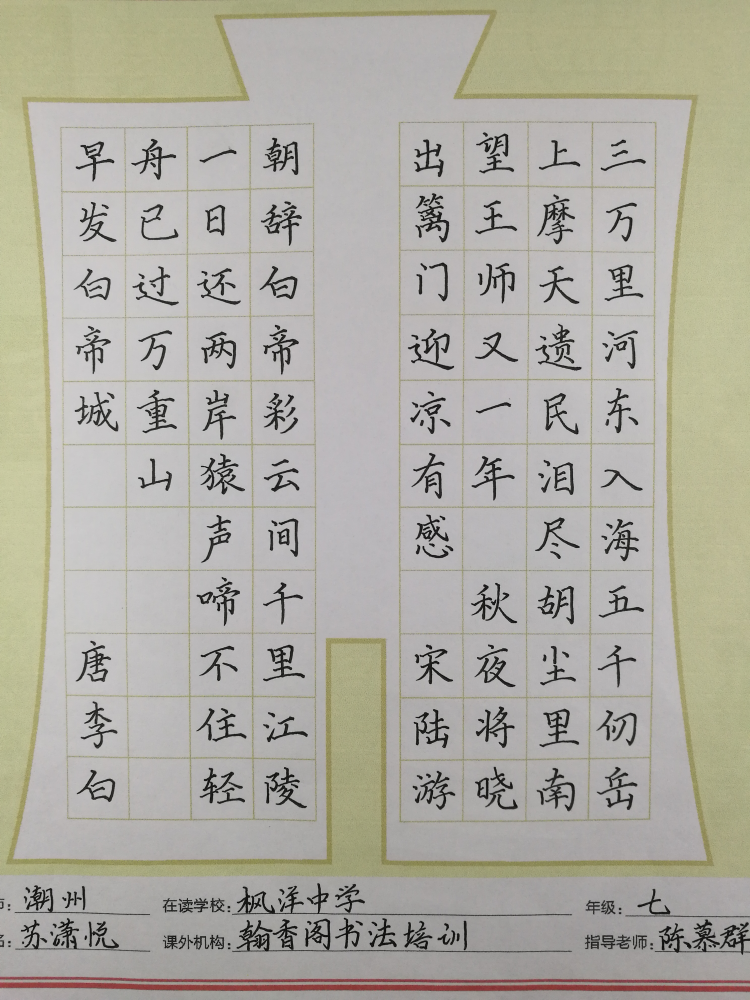 三万里河东入海五千仞岳
上摩天遗民泪尽胡尘里南
望王师又一年 秋夜将晓
出篱门迎凉有感 宋陆游
朝辞白帝彩云间千里江陵
一日还两岸猿声啼不住轻
舟已过万重山
早发白帝城 唐李白
市：潮州 在读学校：枫洋中学 年级：七
名：苏潇悦 课外机构：翰香阁书法培训 指导老师：陈慕群